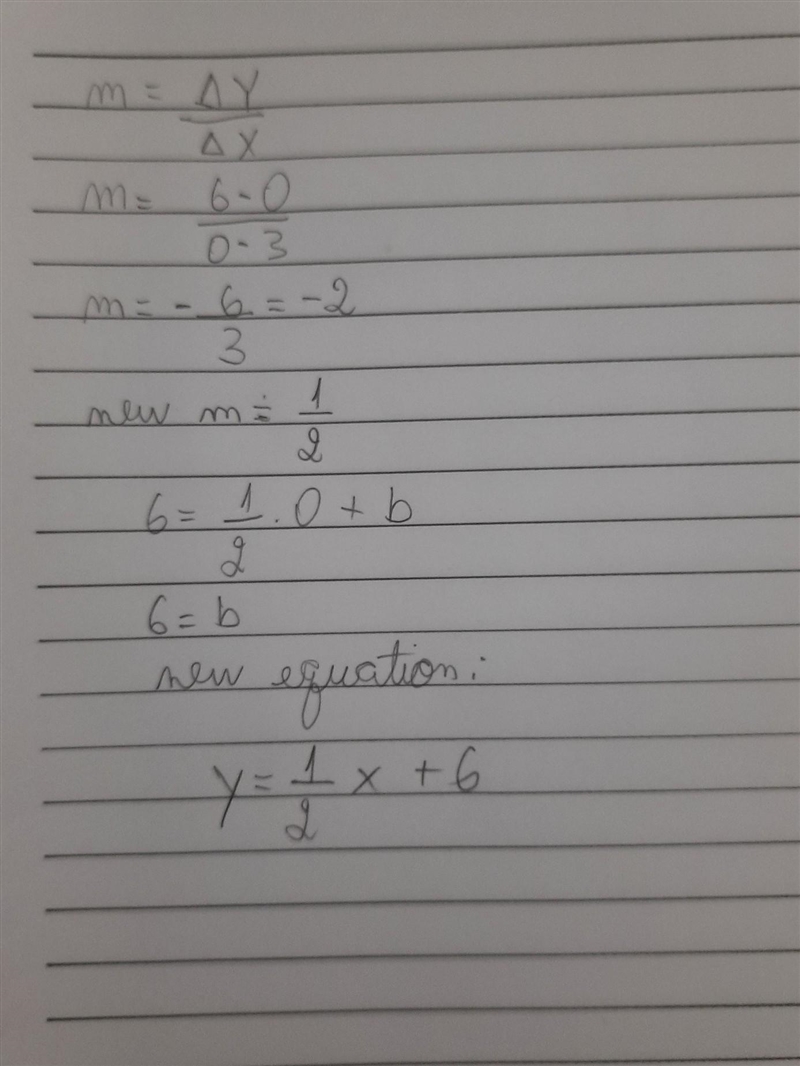 m = ΔY/ΔX
m = 6-0/0-3
m = - 6/3 = -2
new m = 1/2
6 = 1/2 . 0 + b
6 = b
new equation:
y = 1/2 x + 6